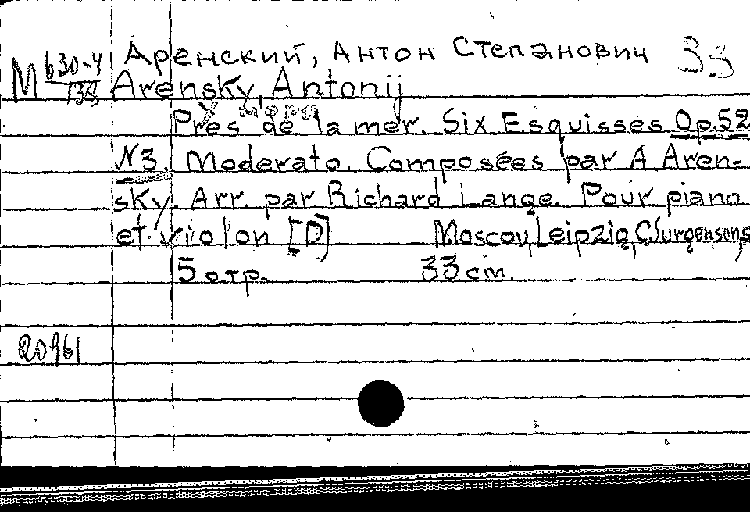 Аренский, Антон Степанович 33
М 630-4 Arensky, Antonij
У моря
Près de la mer. Six Esquisses Op.52
N3 Moderato. Composées par A Aren-
sky. Arr. par Richard Lange. Pour piano
et violon [D] Moscou, Leipzig, Jurgensons
5 стр. 33 cm.
20961